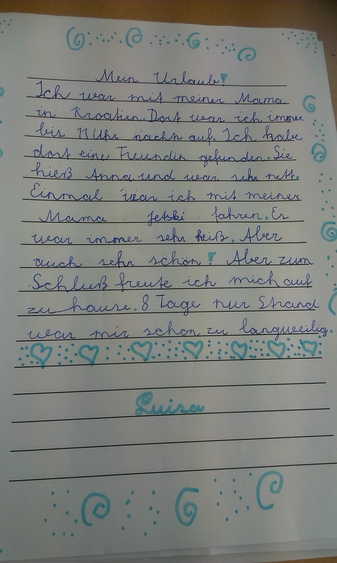 Mein Urlaub!
Ich war mit meiner Mama
in Kroatien. Dort war ich immer
bis 11 Uhr nachts auf. Ich habe
dort eine Freundin gefunden. Sie
hieß Anna und war sehr nett.
Einmal war ich mit meiner
Mama Jetski fahren. Es
war immer sehr heiß. Aber
auch sehr schön! Aber zum
Schluß freute ich mich auf
zu hause. 8 Tage nur Strand
war mir schon zu langweilig.
Luisa